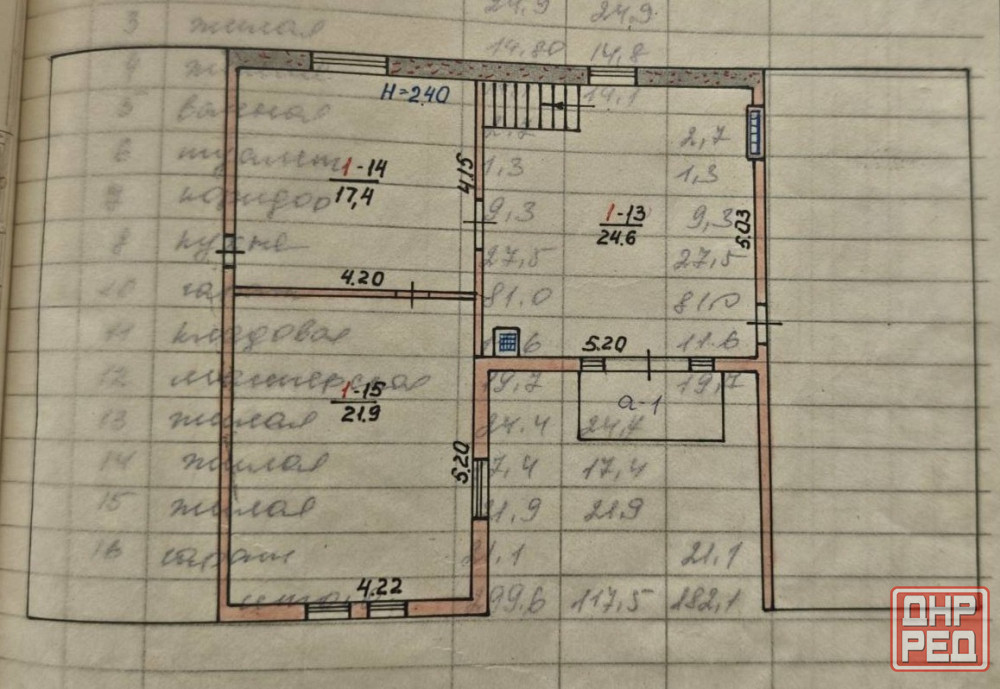 3 жилая 24.9 24.9
14.80 14.8
4
H=2.40
5 ванная 14.1
2,7 2,7
6 туалет 1,3 1,3
1-14
17,4
4.15
7 коридор 9,3 9,3
1-13
24.6
5.03
8 кухне 27,5 27,5
4.20
10 81.0 81.0
11 кладовая 6 11.6
5.20
12 мастерская 19,7 19,7
1-15
21.9
a-1
13 жилая 24.4 24,4
5.20
14 жилая 7,4 17,4
15 жилая 21,9 21.9
16 21.1 21.1
4.22
199.6 117,5 182,1
ДНР
РЕД